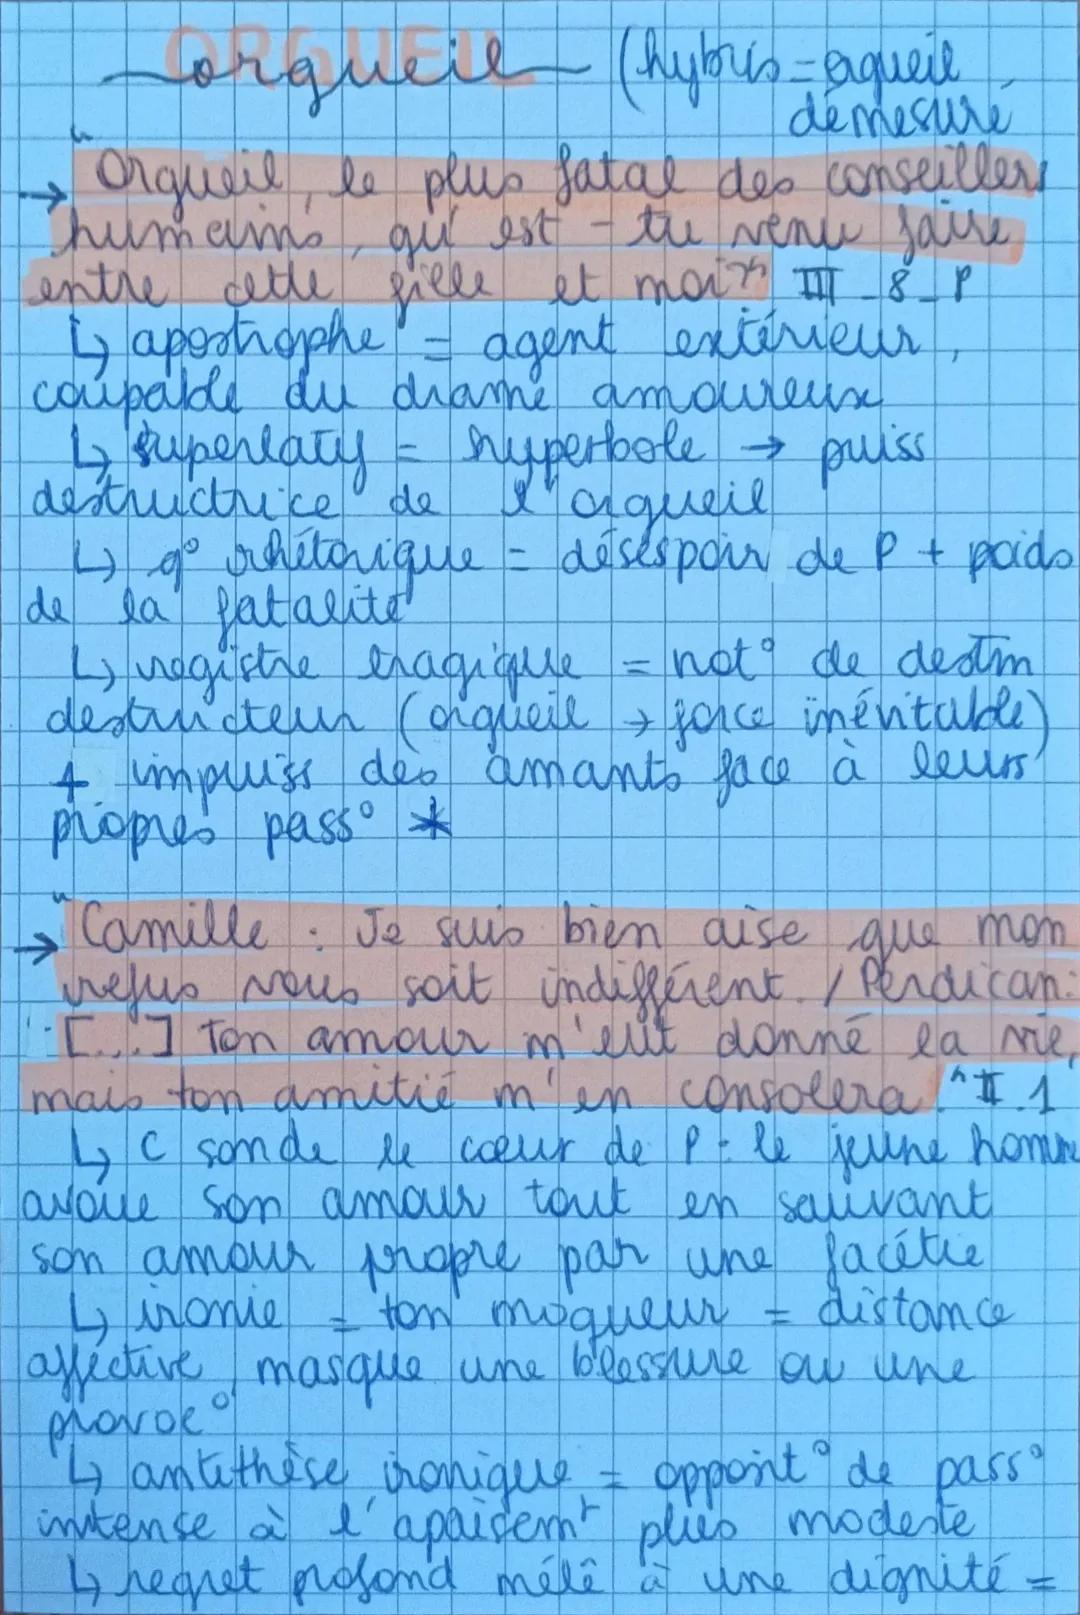 ORGUEIL
orgueil (hybris = orgueil
démesuré
→ "Orgueil, le plus fatal des conseillers
humains, qu'est-tu venu faire
entre cette fille et moi ?" III_8_P
↳ apostrophe = agent extérieur,
coupable du drame amoureux
↳ superlatif = hyperbole → puiss
destructrice de l'orgueil
↳ q° rhétorique = désespoir de P + poids
de la fatalité
↳ registre tragique = not° de destin
destructeur (orgueil → force inévitable)
+ impuiss des amants face à leurs
propres pass° *
→ "Camille : Je suis bien aise que mon
refus vous soit indifférent. / Perdican :
[...] ton amour m'eût donné la vie,
mais ton amitié m'en consolera." II.1
↳ C sonde le cœur de P : le jeune homme
avoue son amour tout en sauvant
son amour propre par une facétie
↳ ironie = ton moqueur = distance
affective, masque une blessure ou une
provoc°
↳ antithèse ironique = opposit° de pass°
intense à l'apaisemt plus modeste
↳ regret profond mêlé à une dignité =